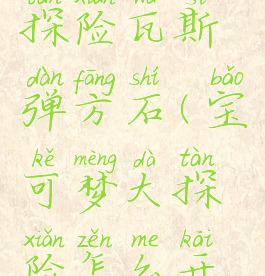 探险瓦斯
dàn fāng shí bǎo
弹方石(宝
kě mèng dà tàn
可梦大探
xiǎn zěn me kāi
险怎么开